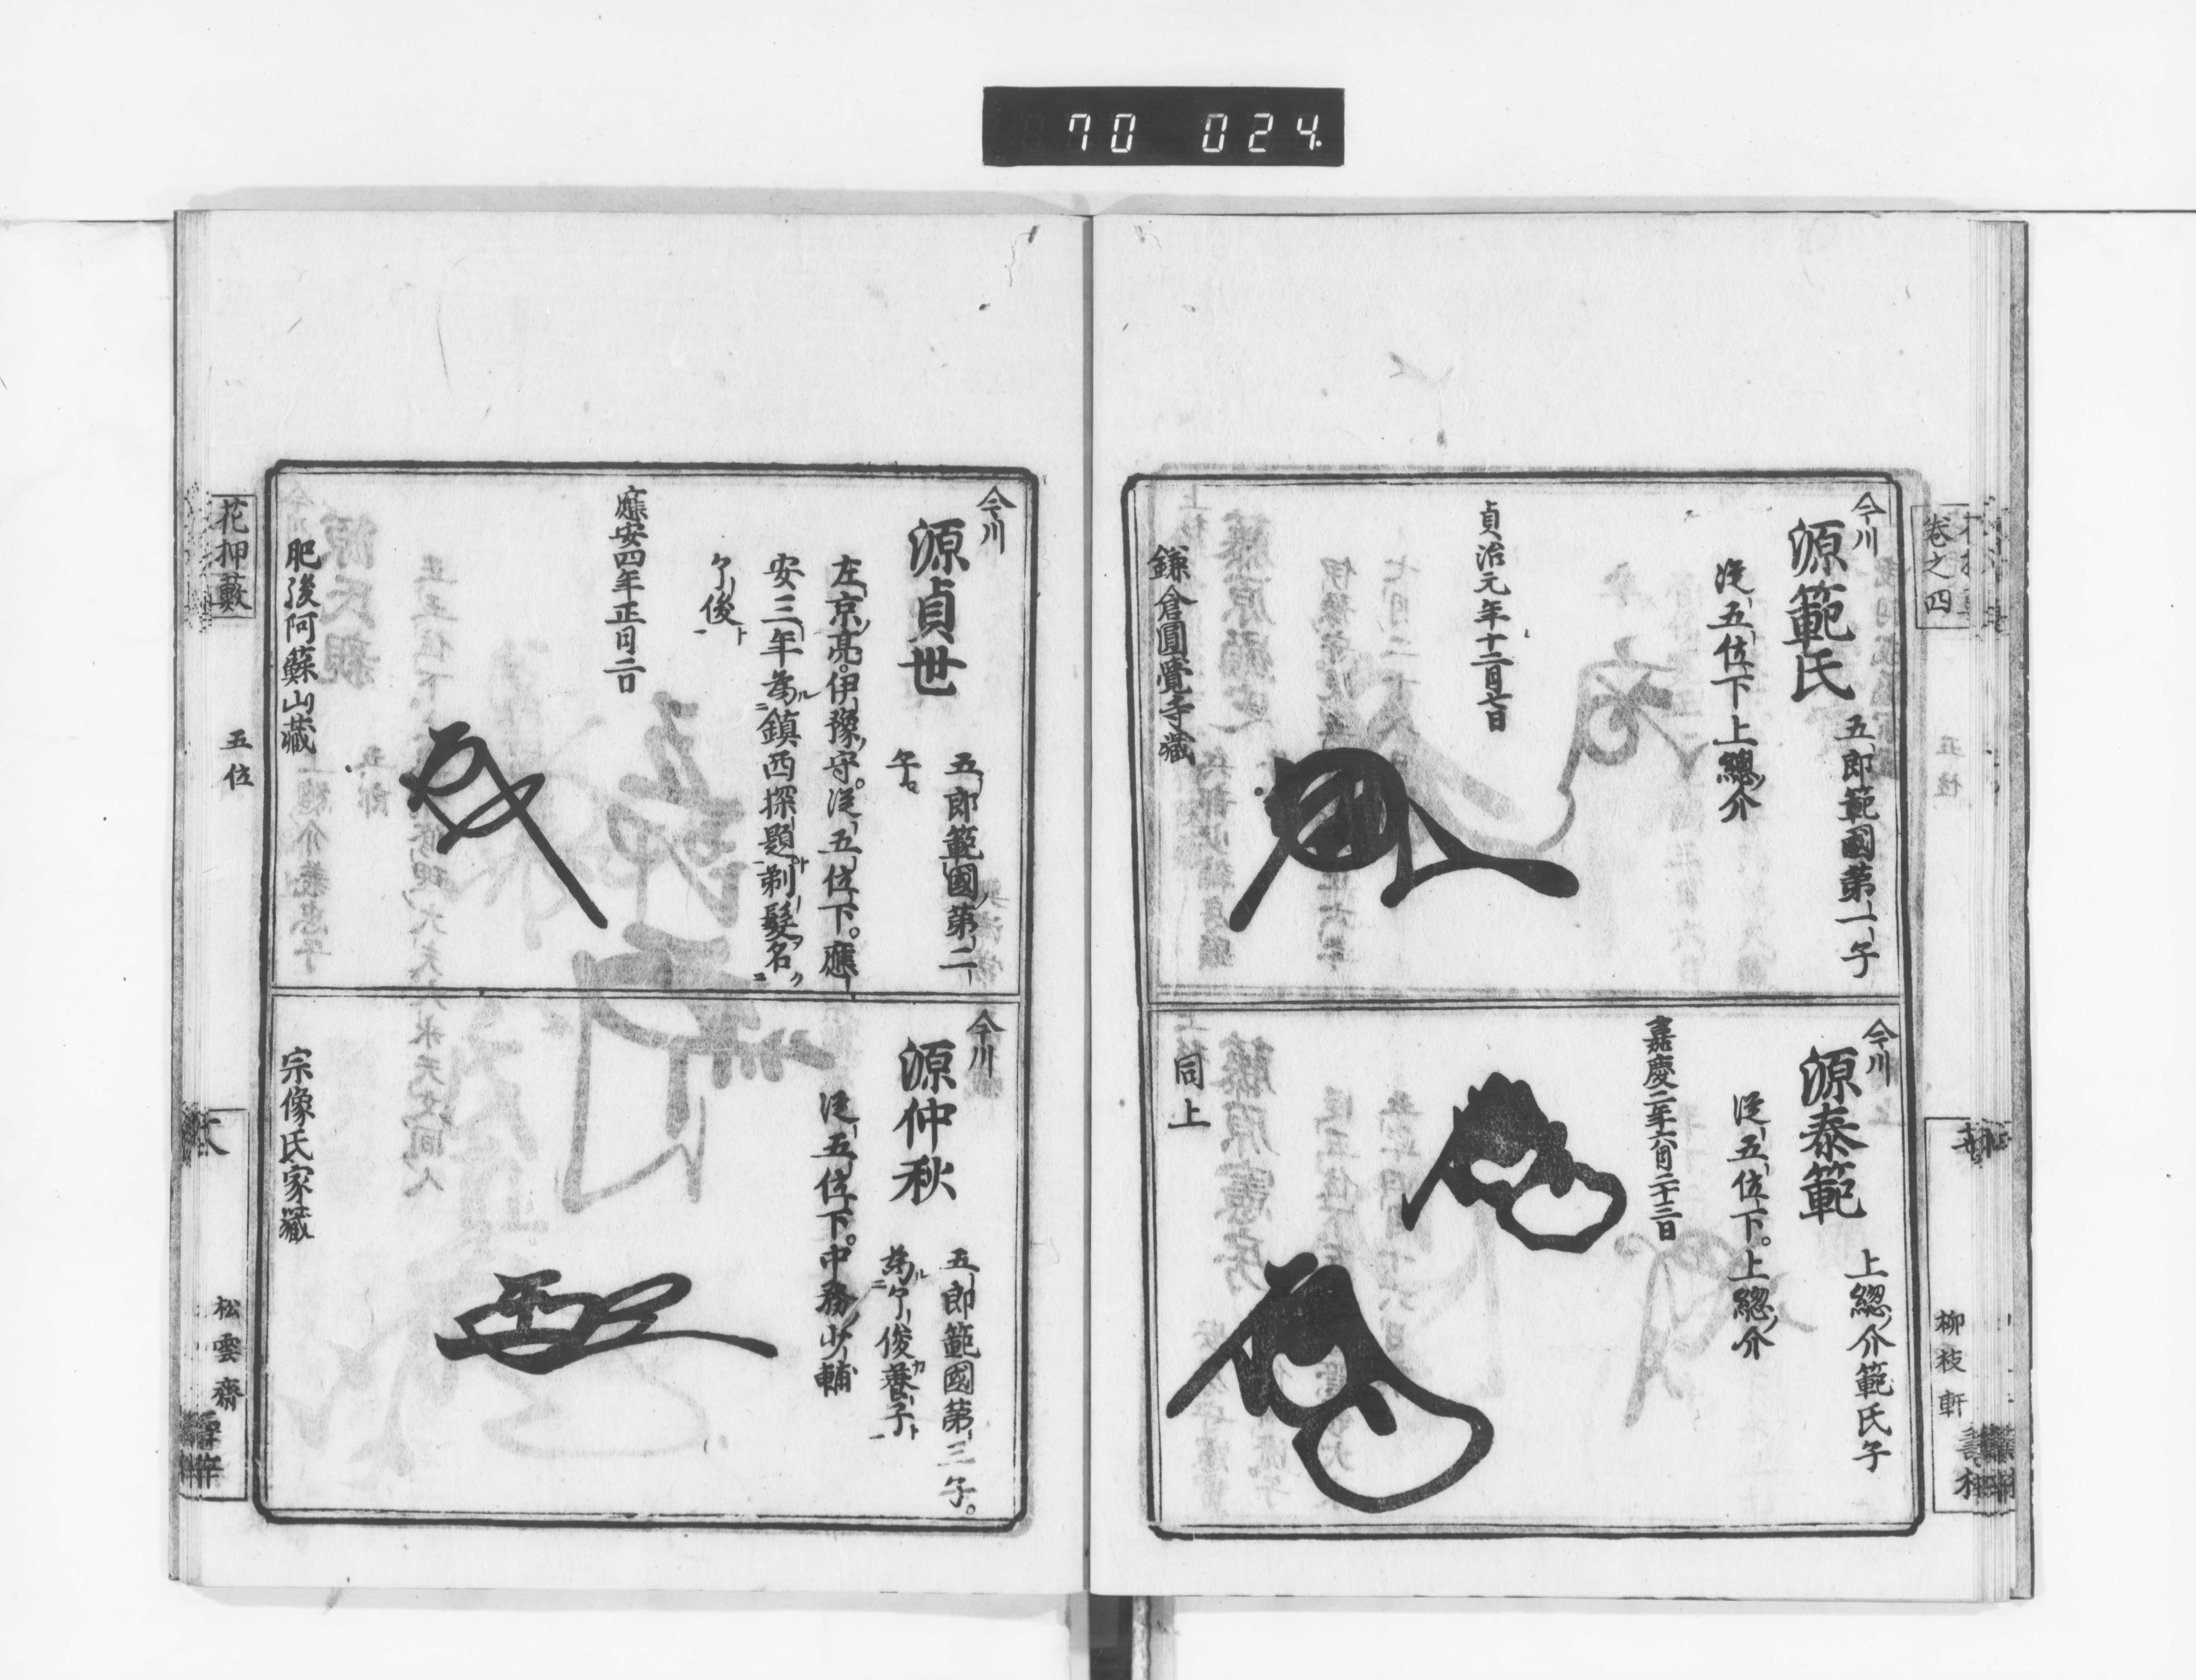 70 024
卷之四
柳枝軒
今川
源範氏
五郎範國第一子
從五位下上總介
貞治元年十二月七日
鎌倉圓覺寺藏
今川
源泰範
上總介範氏子
從五位下。上總介
嘉慶二年六月二十三日
同上
今川
源貞世
五郎範國第二
子
左京亮。伊豫守。從五位下。應
安三年為ル二鎮西探題ト一剃髮名ク二
了俊ト一
應安四年正月二日
肥後阿蘇山藏
今川
源仲秋
五郎範國第三子。
為ル二了俊カ養子ト一
從五位下。中務少輔
宗像氏家藏
花押藪
五位
六
松雲齋